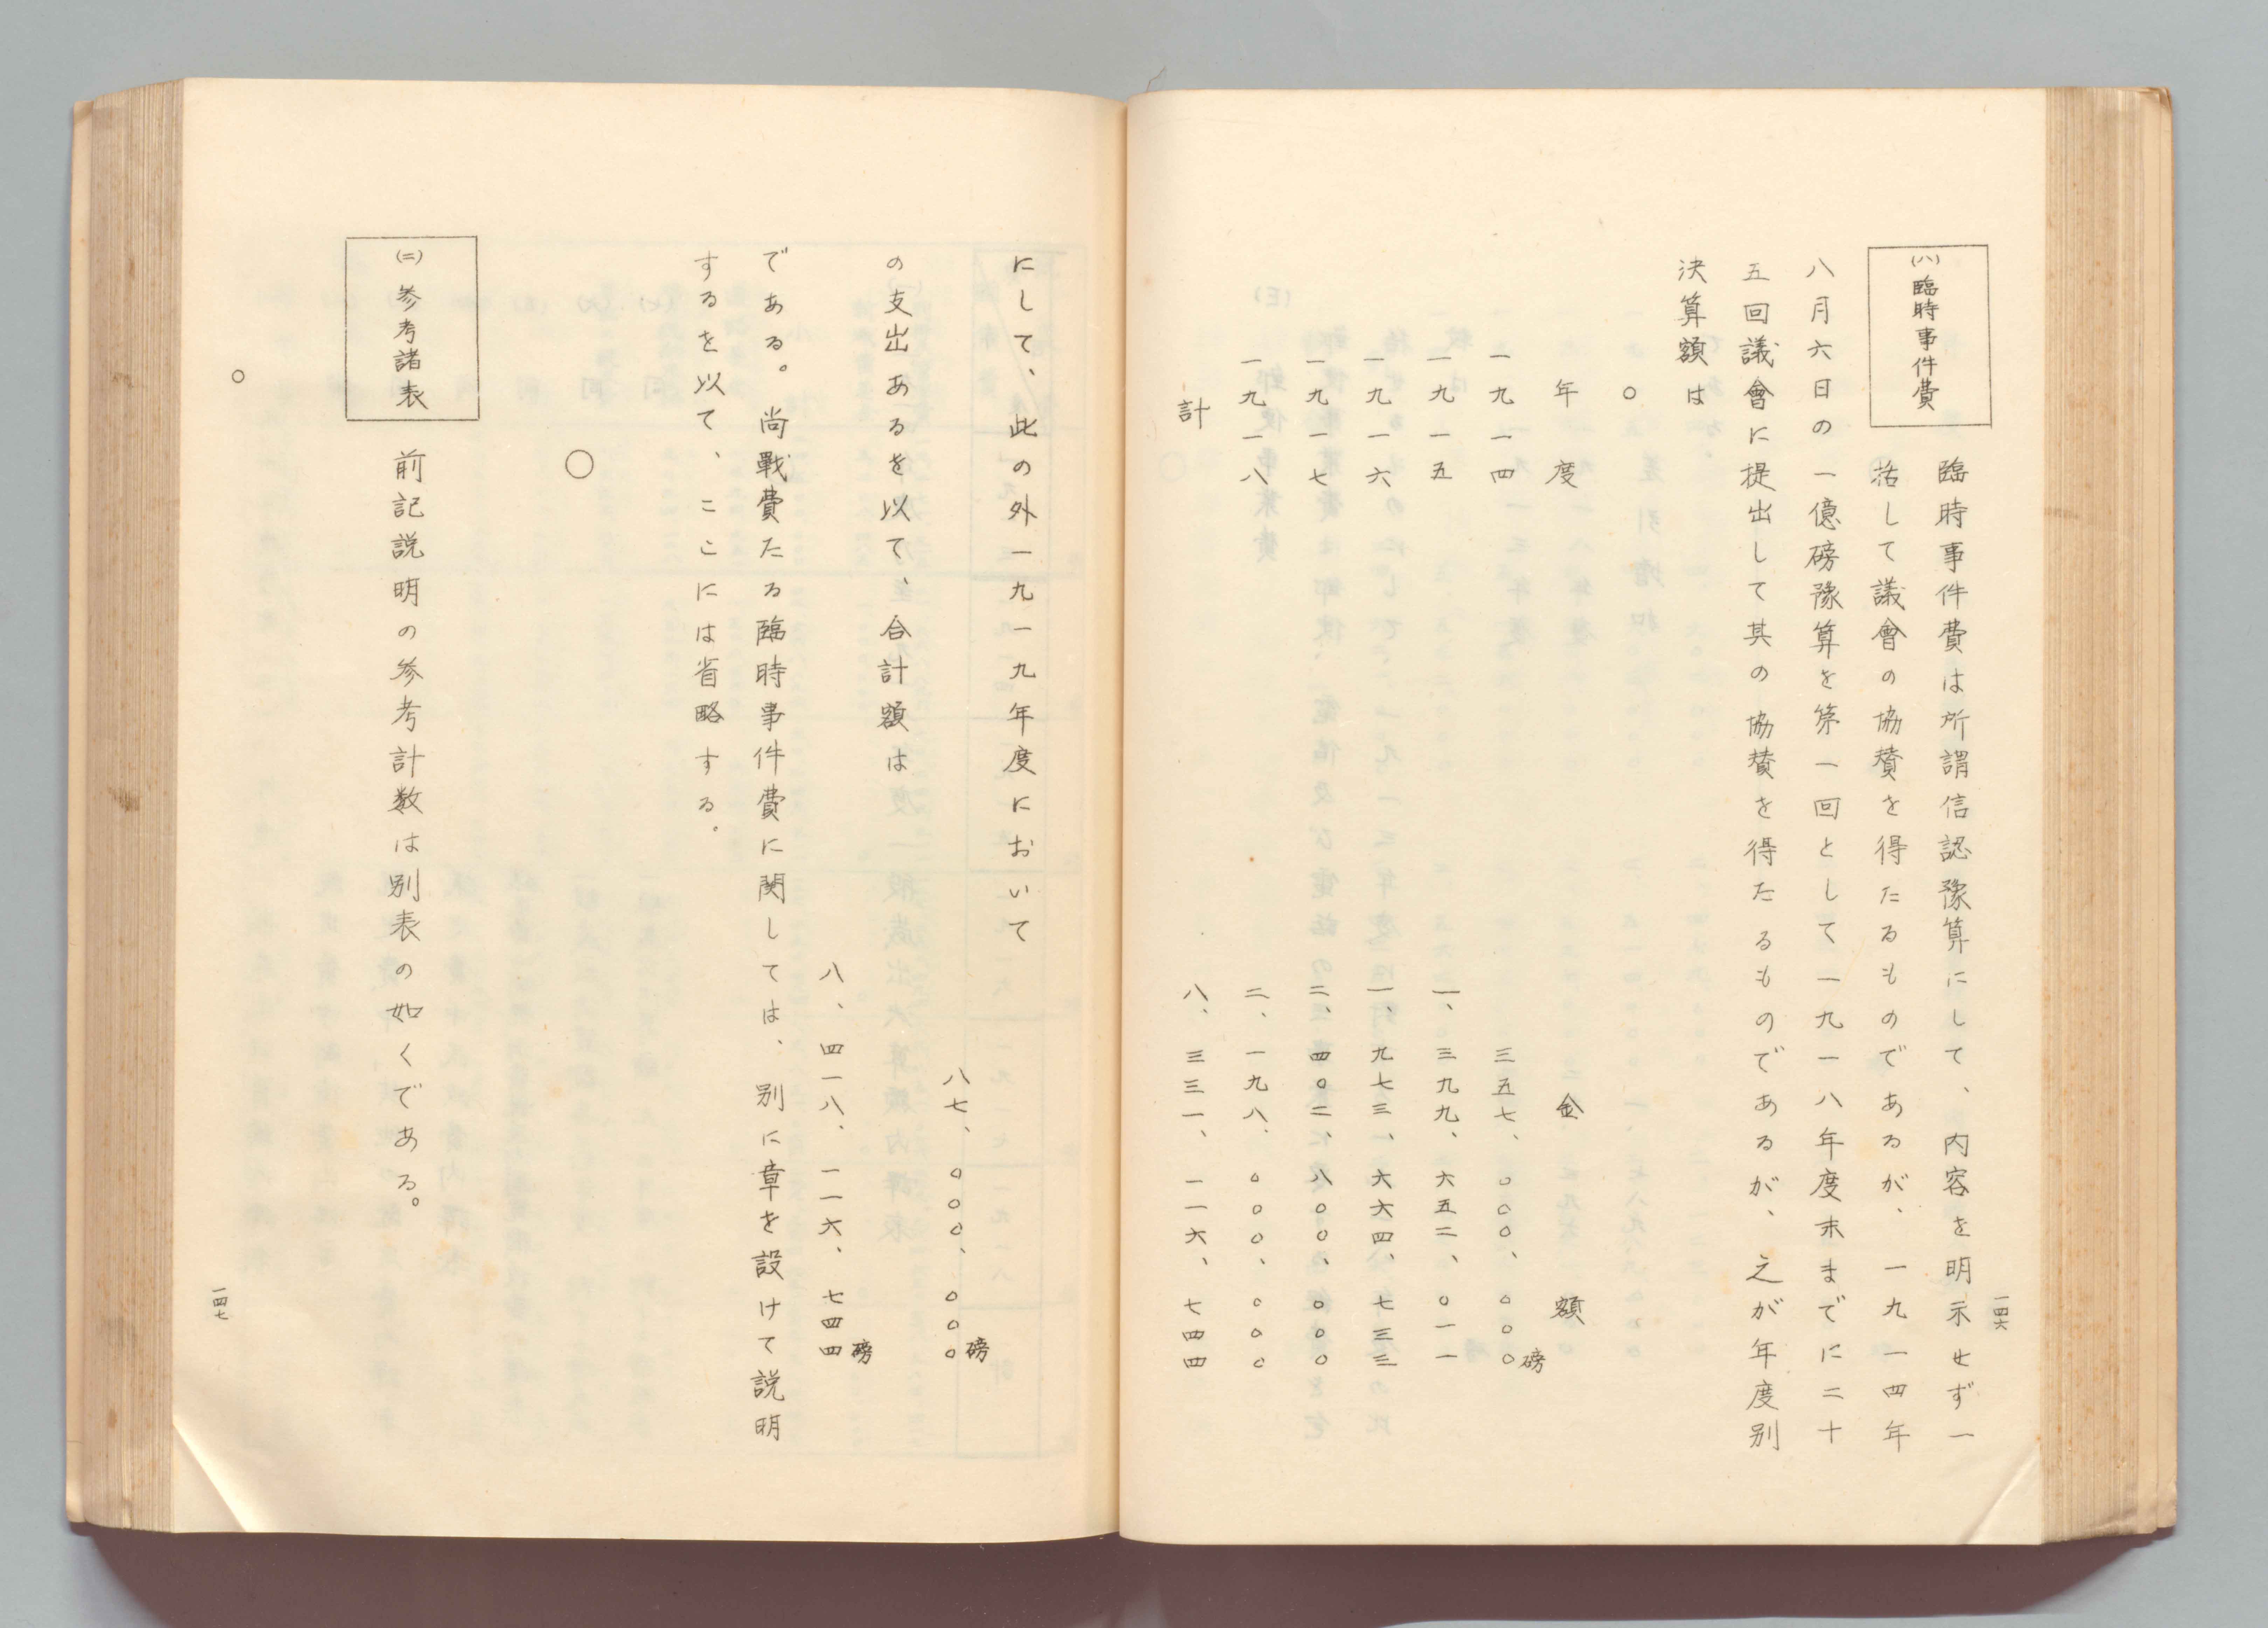 (ハ)臨時事件費
臨時事件費は所謂信認豫算にして、内容を明示せず一
括して議會の協賛を得たるものであるが、一九一四年
八月六日の一億磅豫算を第一回として一九一八年度末までに二十
五回議會に提出して其の協賛を得たるものであるが、之が年度別
決算額は
○
年度 金額
一九一四 三五七、〇〇〇、〇〇〇磅
一九一五 一、三九九、六五二、〇一一
一九一六 一、九七三、六六四、七三三
一九一七 二、四〇二、八〇〇、〇〇〇
一九一八 二、一九八、〇〇〇、〇〇〇
計 八、三三一、一一六、七四四
一四六
にして、此の外一九一九年度において
八七、〇〇〇、〇〇〇磅
の支出あるを以て、合計額は
八、四一八、一一六、七四四磅
である。尚戰費たる臨時事件費に関しては、別に章を設けて説明
するを以て、ここには省略する。
○
(ニ)参考諸表
前記説明の参考計数は別表の如くである。
○
一四七